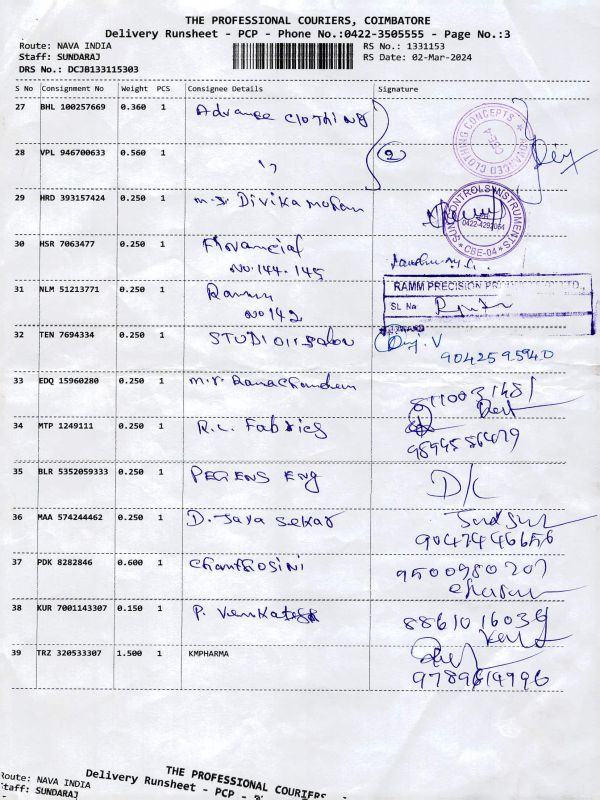 THE PROFESSIONAL COURIERS, COIMBATORE
Delivery Runsheet - PCP - Phone No.:0422-3505555 - Page No.:3
Route: NAVA INDIA RS No.: 1331153
Staff: SUNDARAJ RS Date: 02-Mar-2024
DRS No.: DCJB133115303
S No Consignment No Weight PCS Consignee Details Signature
27 BHL 100257669 0.360 1 Advance Clothing
28 VPL 946700633 0.560 1 " 2
ADVANCED CLOTHING CONCEPTS CBE-4
29 HRD 393157424 0.250 1 M.S. Divika Mohan
SUN CONTROLS INSTRUMENTS 0422-4292064 CBE-04
30 HSR 7063477 0.250 1 Financial
No.144.145
31 NLM 51213771 0.250 1 Ramm
No 142
RAMM PRECISION
SL No
32 TEN 7694334 0.250 1 STUDIO 11 Salon
9042595940
33 EDQ 15960280 0.250 1 M.r. Ramachandren
8110031481
34 MTP 1249111 0.250 1 R.L. Fabrics
9894556479
35 BLR 5352059333 0.250 1 PEGENS ENG D/C
36 MAA 574244462 0.250 1 D. Jaya Sekar
9047446656
37 PDK 8282846 0.600 1 Chanthosini 9500980207
38 KUR 7001143307 0.150 1 P. Venkatesh 8861016039
39 TRZ 320533307 1.500 1 KMPHARMA
9789614996
THE PROFESSIONAL COURIERS
Delivery Runsheet - PCP -
Route: NAVA INDIA
Staff: SUNDARAJ